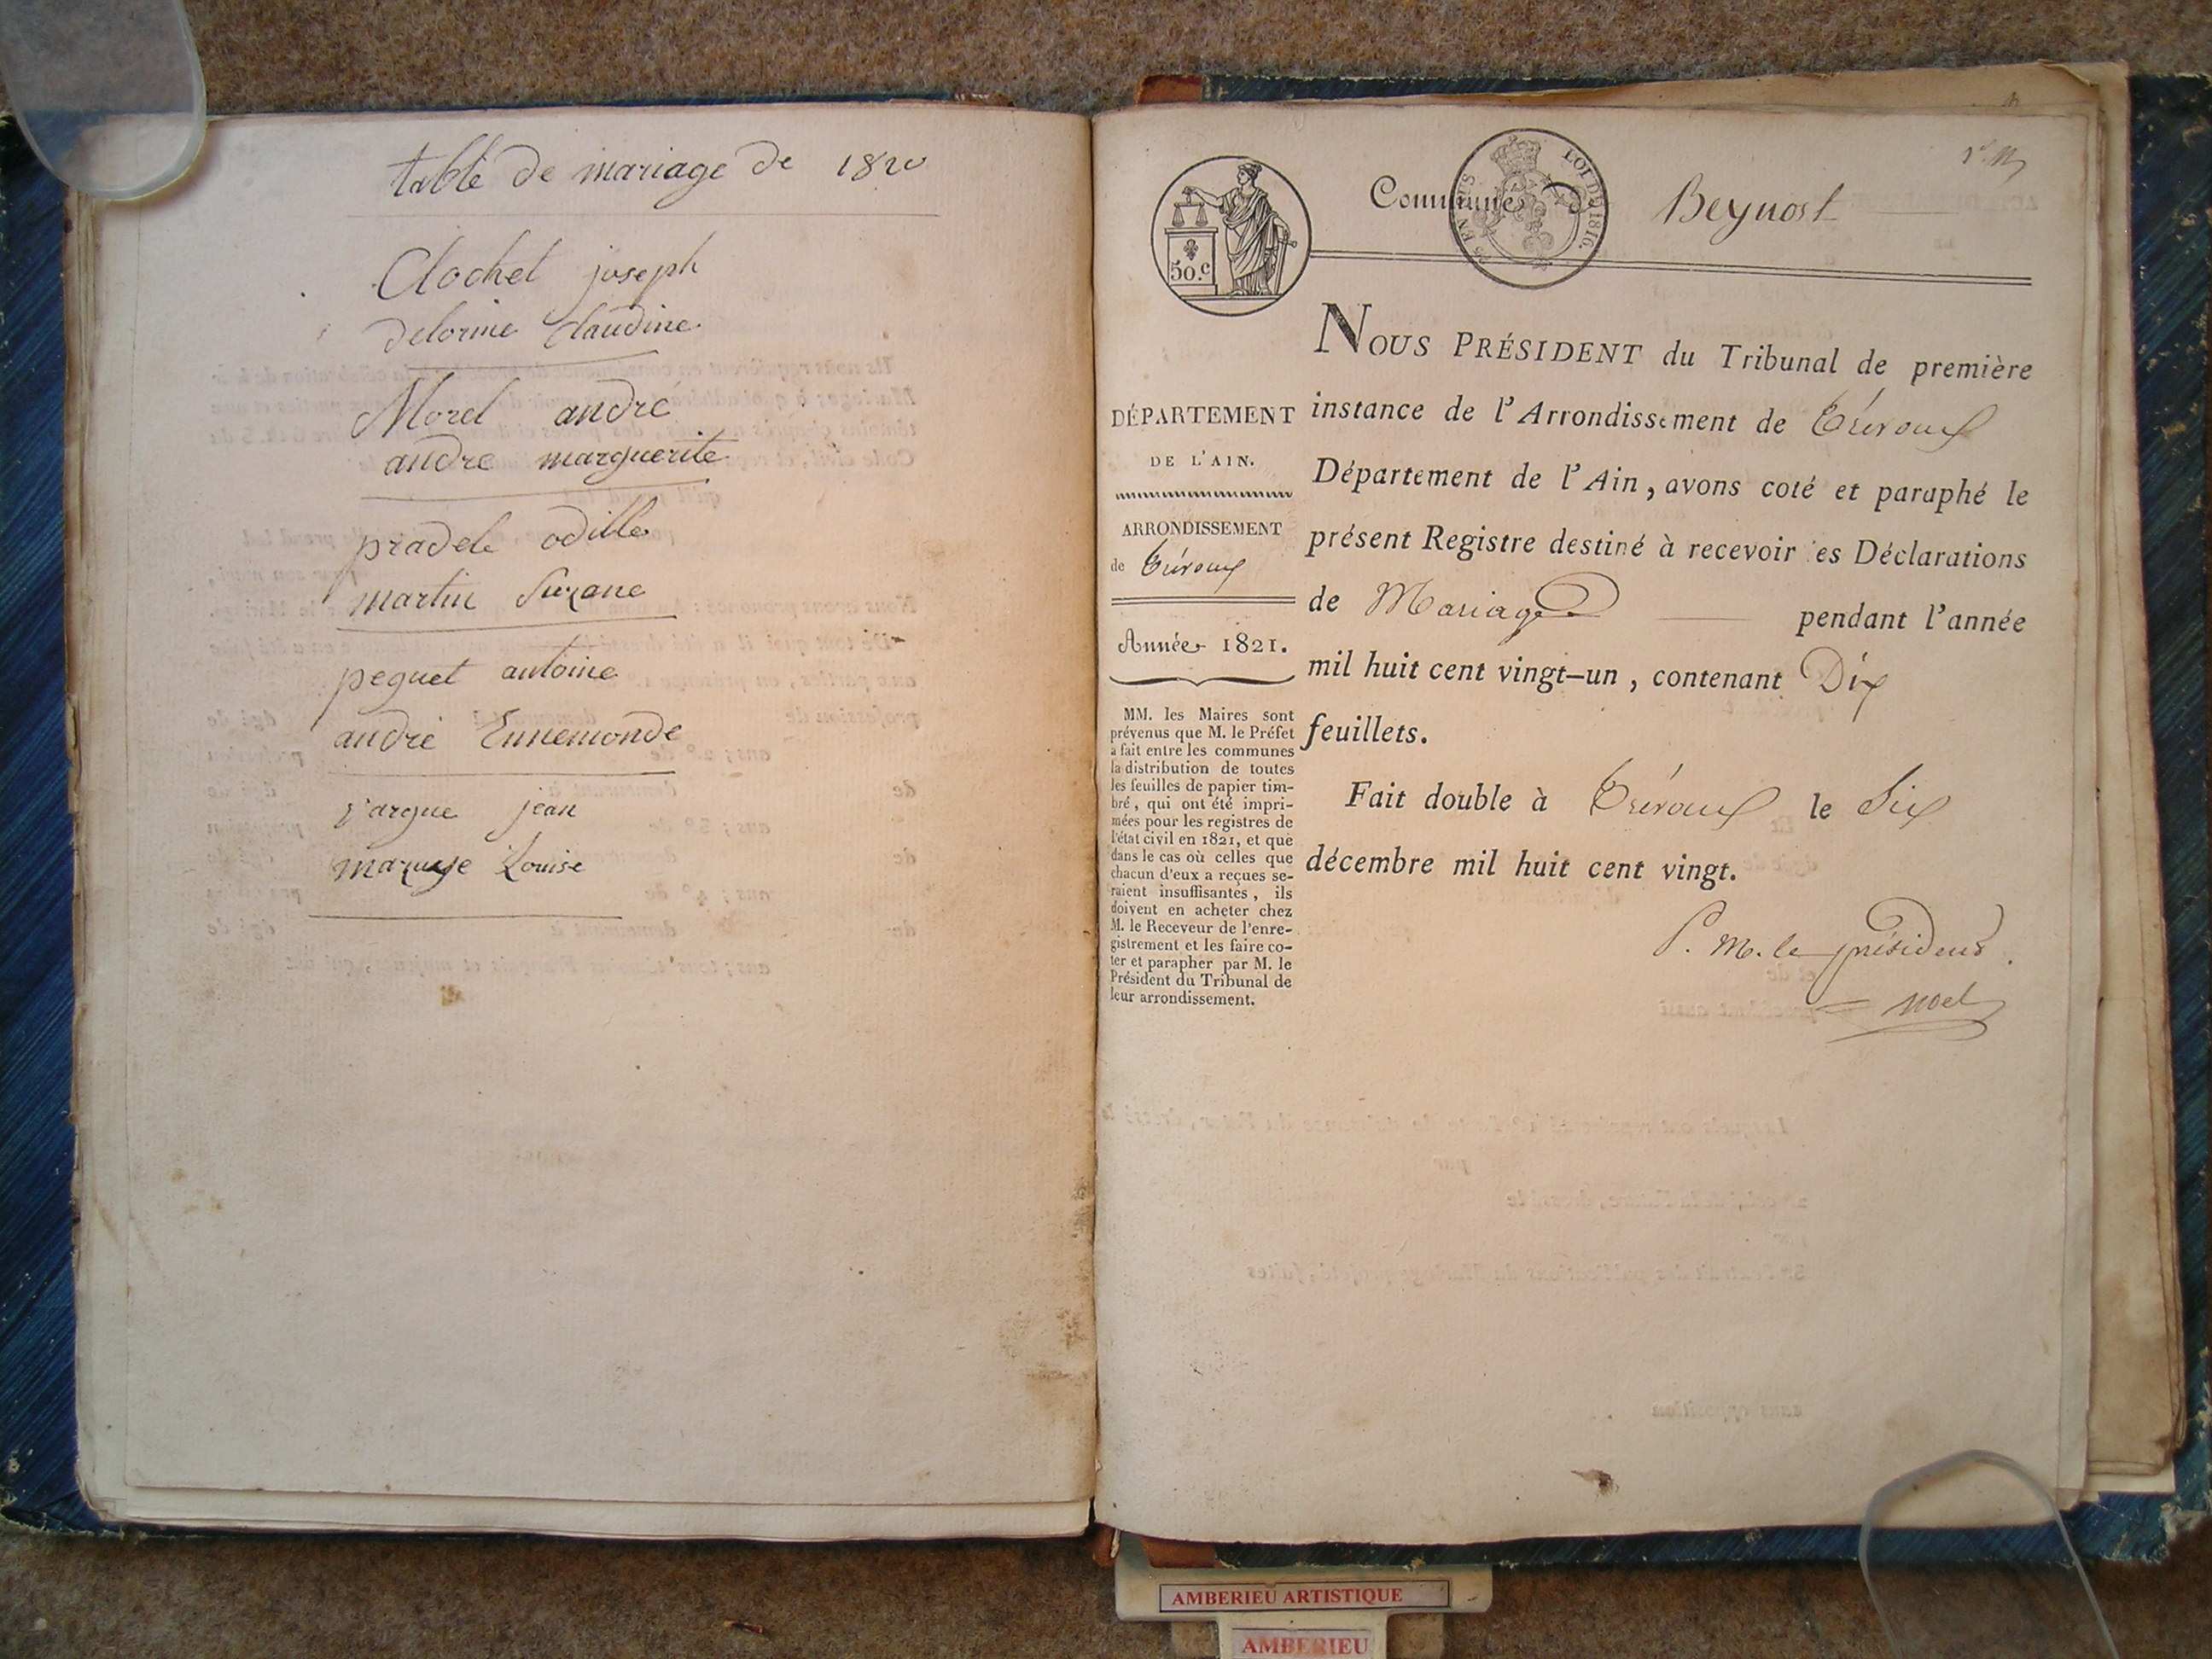 table de mariage de 1820
Clochet joseph
delorme Claudine
Morel andré
andré marguerite
pradele odille
martin Suzane
peguet antoine
andré Ennemonde
vargue jean
Louise
50.c
LOI DE 1816.
Commune de Beynost
NOUS PRÉSIDENT du Tribunal de première
instance de l'Arrondissement de Trévoux
Département de l'Ain, avons coté et paraphé le
présent Registre destiné à recevoir es Déclarations
de Mariage pendant l'année
mil huit cent vingt-un, contenant Dix
feuillets.
Fait double à Trévoux le Six
décembre mil huit cent vingt.
P. M. le président.
Noel
DÉPARTEMENT
DE L'AIN.
ARRONDISSEMENT
de Trévoux
Année 1821.
MM. les Maires sont
prévenus que M. le Préfet
a fait entre les communes
la distribution de toutes
les feuilles de papier tim-
bré, qui ont été impri-
mées pour les registres de
l'état civil en 1821, et que
dans le cas où celles que
chacun d'eux a reçues se-
raient insuffisantes, ils
doivent en acheter chez
M. le Receveur de l'enre-
gistrement et les faire co-
ter et parapher par M. le
Président du Tribunal de
leur arrondissement.
AMBERIEU ARTISTIQUE
AMBERIEU